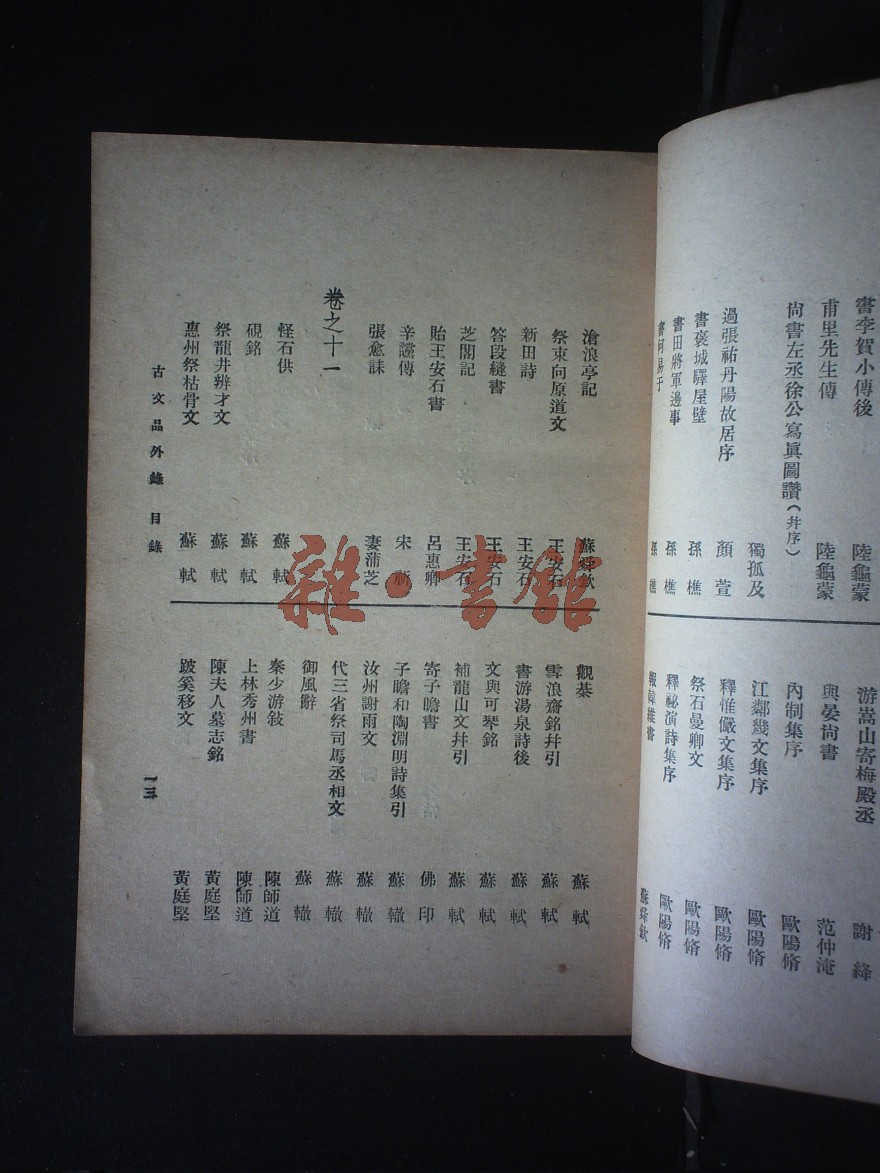 書李賀小傳後 陸龜蒙
甫里先生傳 陸龜蒙
尙書左丞徐公寫眞圖讚(幷序) 獨孤及
過張祐丹陽故居序 顏萱
書褒城驛屋壁 孫樵
書田將軍邊事 孫樵
書何易于 孫樵
游嵩山寄梅殿丞 謝絳
與晏尙書 范仲淹
內制集序 歐陽脩
江鄰幾文集序 歐陽脩
釋惟儼文集序 歐陽脩
祭石曼卿文 歐陽脩
釋祕演詩集序 歐陽脩
報韓維書 蘇舜欽
滄浪亭記 蘇舜欽
祭束向原道文 王安石
新田詩 王安石
答段縫書 王安石
芝閣記 王安石
貽王安石書 呂惠卿
辛讜傳 宋祈
張愈誄 妻蒲芝
卷之十一
怪石供 蘇軾
硯銘 蘇軾
祭龍井辨才文 蘇軾
惠州祭枯骨文 蘇軾
觀棊 蘇軾
雪浪齋銘幷引 蘇軾
書游湯泉詩後 蘇軾
文與可琴銘 蘇軾
補龍山文幷引 蘇軾
寄子瞻書 佛印
子瞻和陶淵明詩集引 蘇轍
汝州謝雨文 蘇轍
代三省祭司馬丞相文 蘇轍
御風辭 蘇轍
秦少游敍 陳師道
上林秀州書 陳師道
陳夫人墓志銘 黃庭堅
跛奚移文 黃庭堅
古文品外錄 目錄
一三
雜·書館